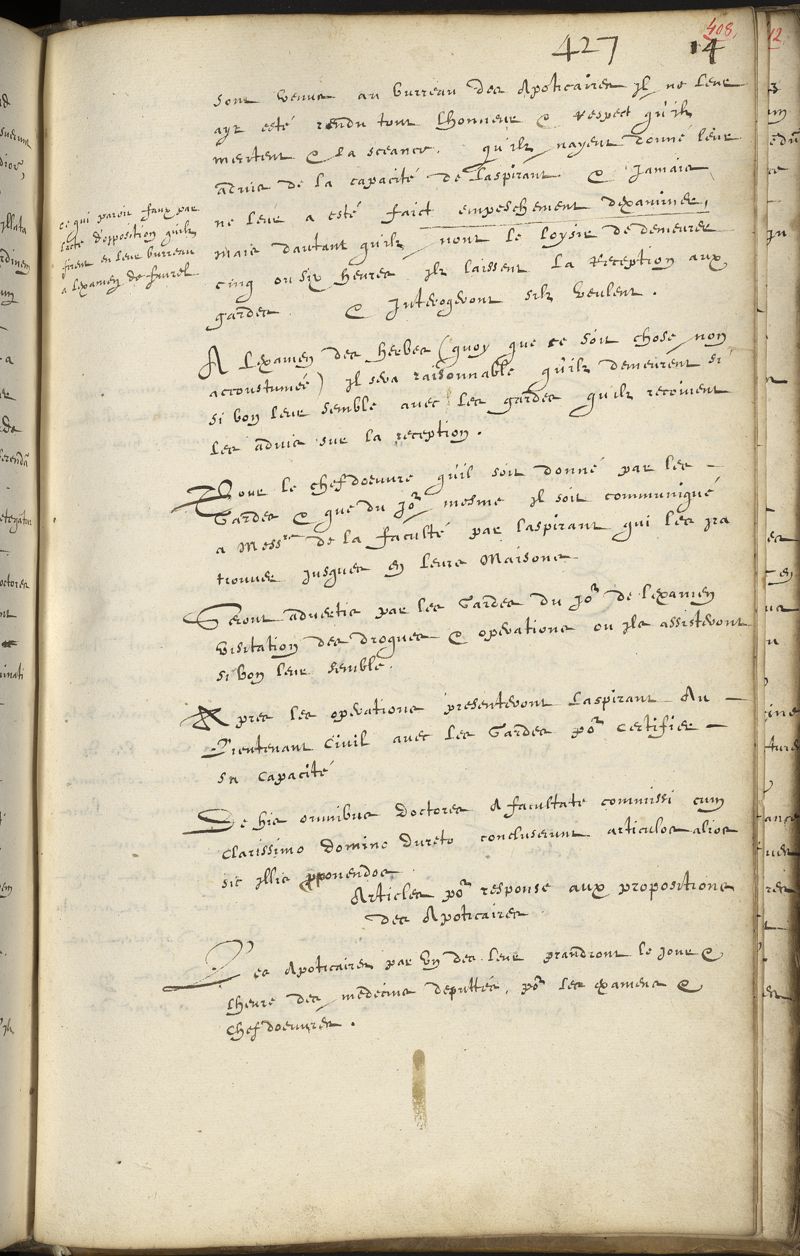 408.
427 14
sont venus au burreau des Apoticaires il ne leur
ayt esté rendu tout lhonneur & respect qu'ilz
meritent & la sceance. qu'ilz nayent donné leur
advis de la capacité de Laspirant & Jamais
ne leur a esté faict empeschement dexaminer,
mais dautant qu'ilz nont le loysir de demeurer
cinq ou six heures ilz laissent la Reception aux
gardes & Interogeront silz veulent.
ce qui paroit faux par
lacte d'opposition qu'ilz
firent en leur burreau
a lexamen de
A Lexamen des herbes (quoy que ce soit chose non
accoustumée) il sera raisonnable qu'ilz demeurent si
si bon leur semble avec les gardes qu'ilz recoivent
les advis sur la reception.
Pour le chefdoeuvre qu'il soit donné par les
Gardes & que du jor mesme il soit communiqué
a Messrs de la faculté par laspirant qui les ira
trouver jusques en leurs Maisons
Seront advertis par les Gardes du jor de lexamen
visitation des drogues & operations ou ils assisteront
si bon leur semble.
Apres les operations presenteront Laspirant Au
Lieutenant Civil avec les Gardes por certifier
sa capacité
De his omnibus doctores A facultate commissi cum
Clarissimo domino dureto concluserunt articulos alios
sic illis pponendos.
Articles por response aux propositions
des Apoticaires
Les Apoticaires par un des leur prandront le jour &
lheure des medecins deputtés, por les examens &
chefdoeuvres.